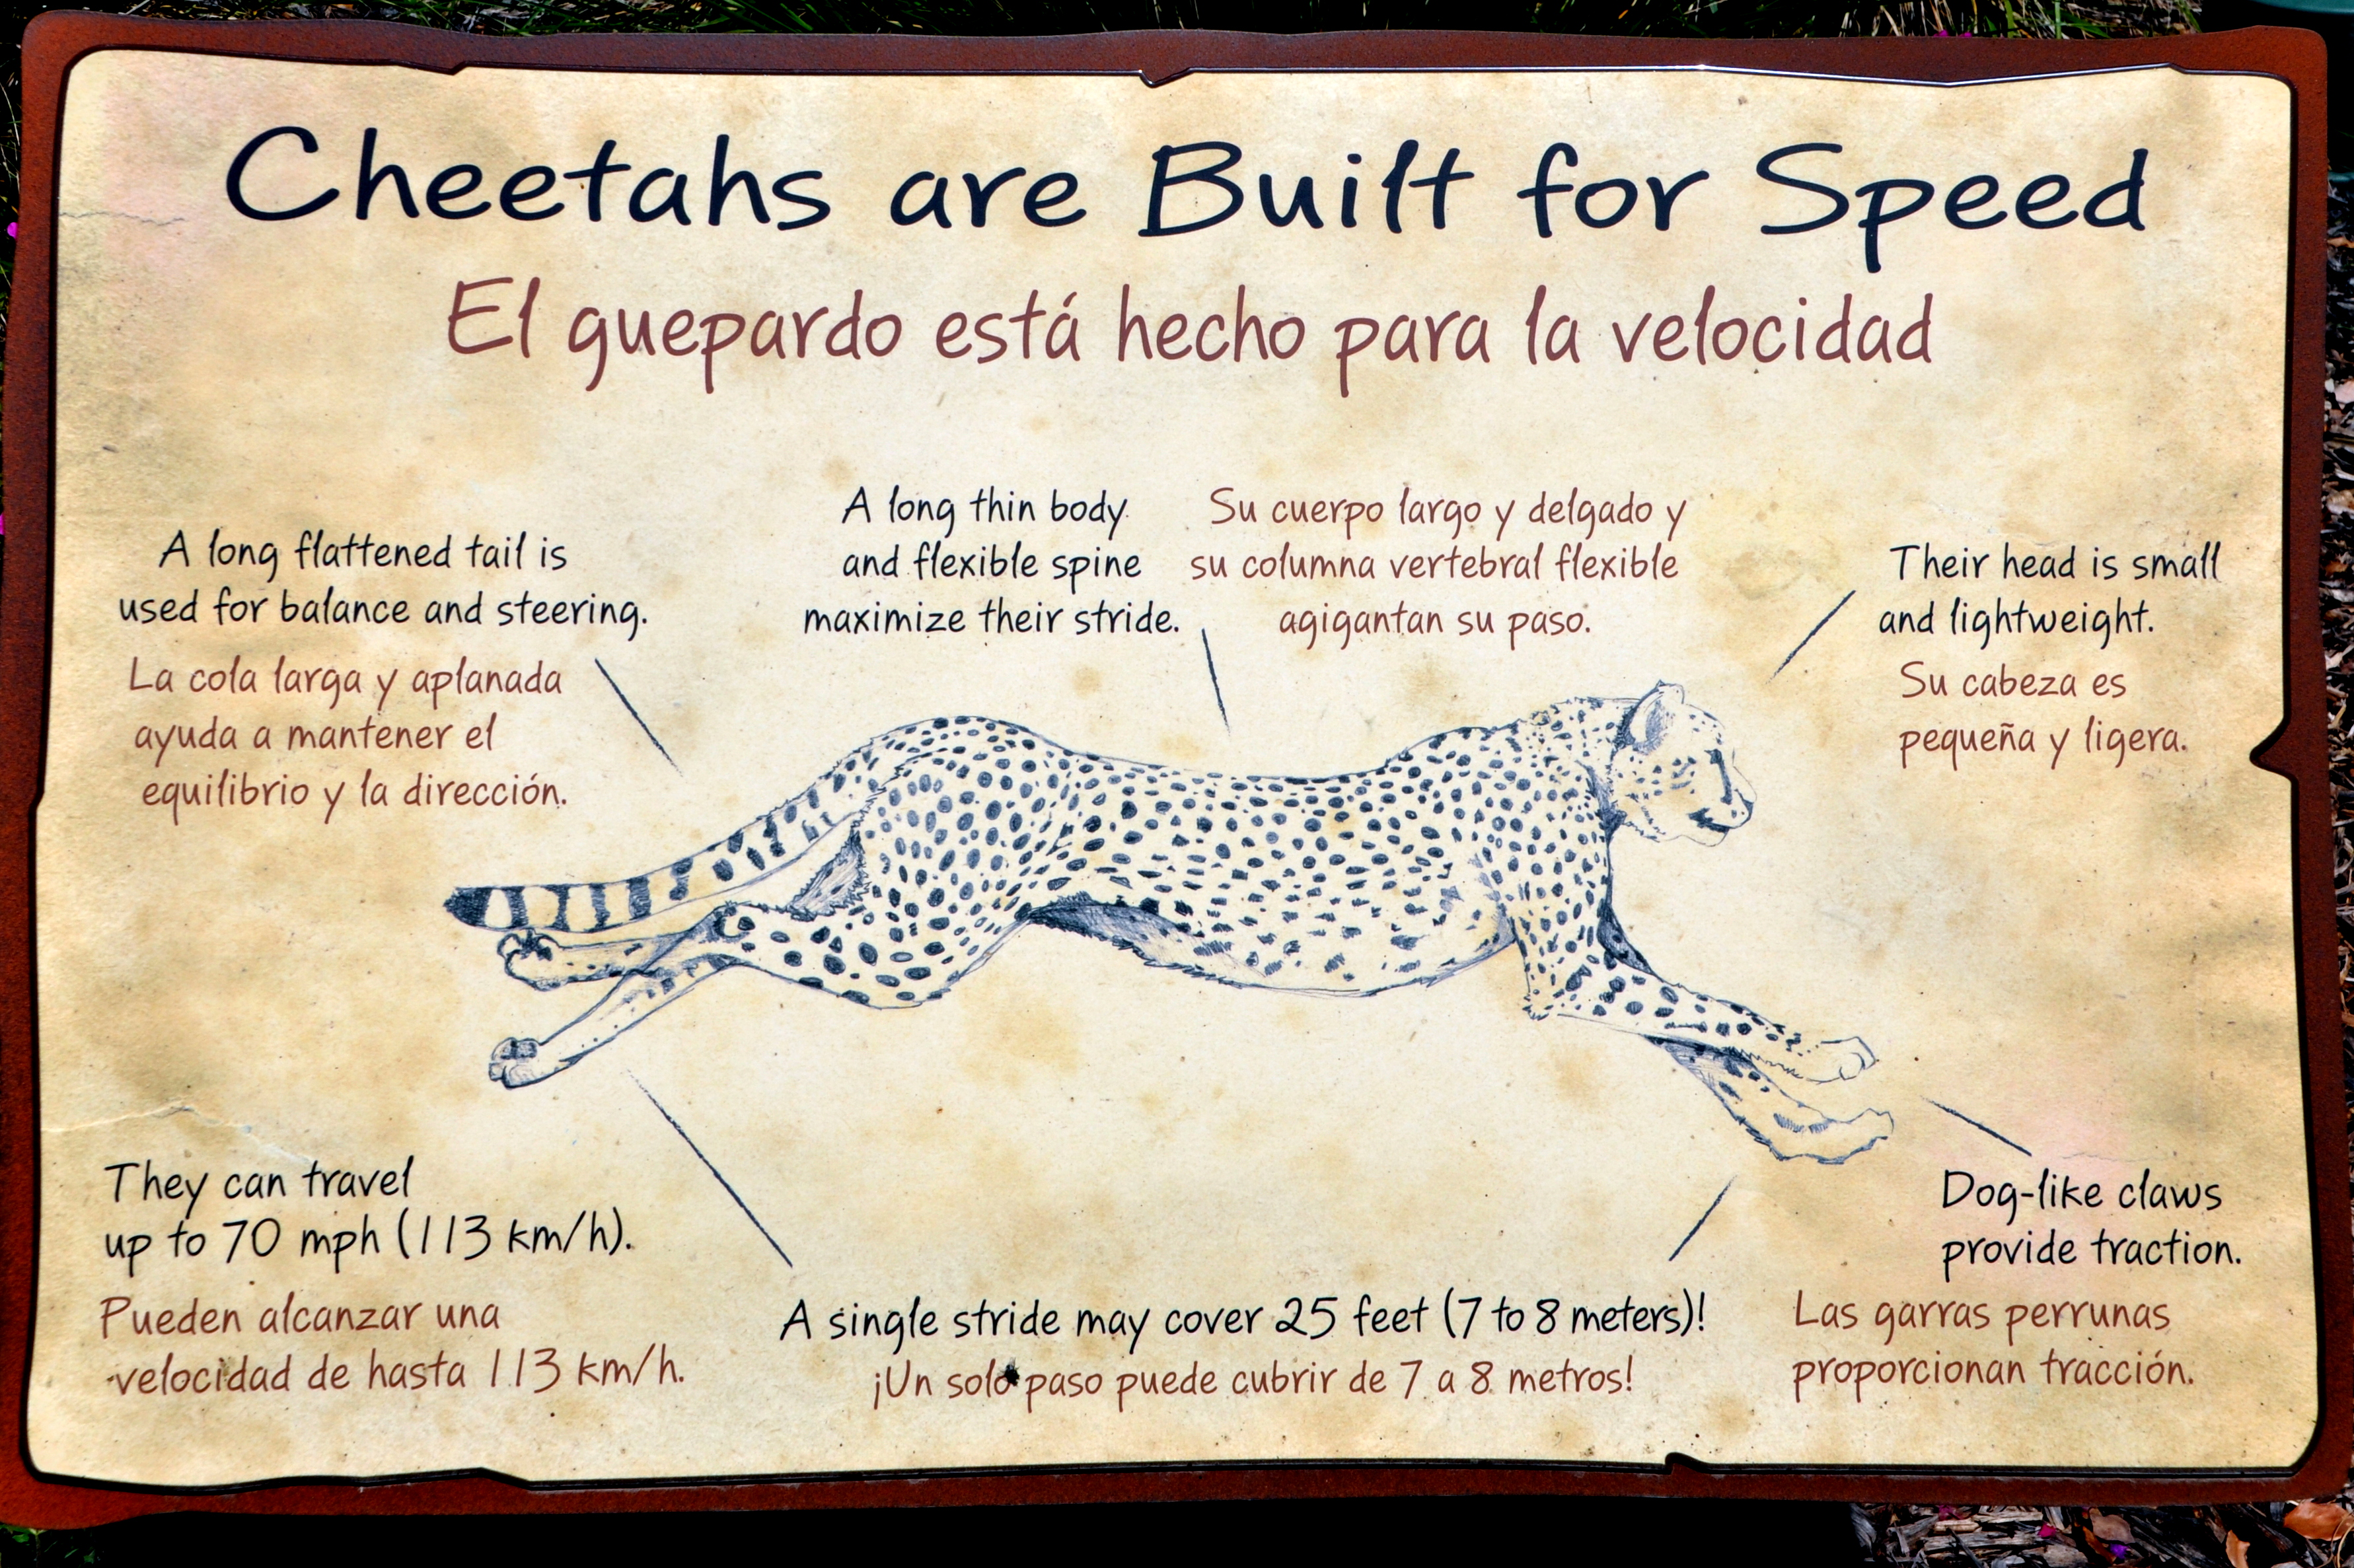 Cheetahs are Built for Speed
El guepardo está hecho para la velocidad
A long flattened tail is
used for balance and steering.
La cola larga y aplanada
ayuda a mantener el
equilibrio y la dirección.
A long thin body
and flexible spine
maximize their stride.
Su cuerpo largo y delgado y
su columna vertebral flexible
agigantan su paso.
Their head is small
and lightweight.
Su cabeza es
pequeña y ligera.
They can travel
up to 70 mph (113 km/h).
Pueden alcanzar una
velocidad de hasta 113 km/h.
A single stride may cover 25 feet (7 to 8 meters)!
¡Un solo paso puede cubrir de 7 a 8 metros!
Dog-like claws
provide traction.
Las garras perrunas
proporcionan tracción.